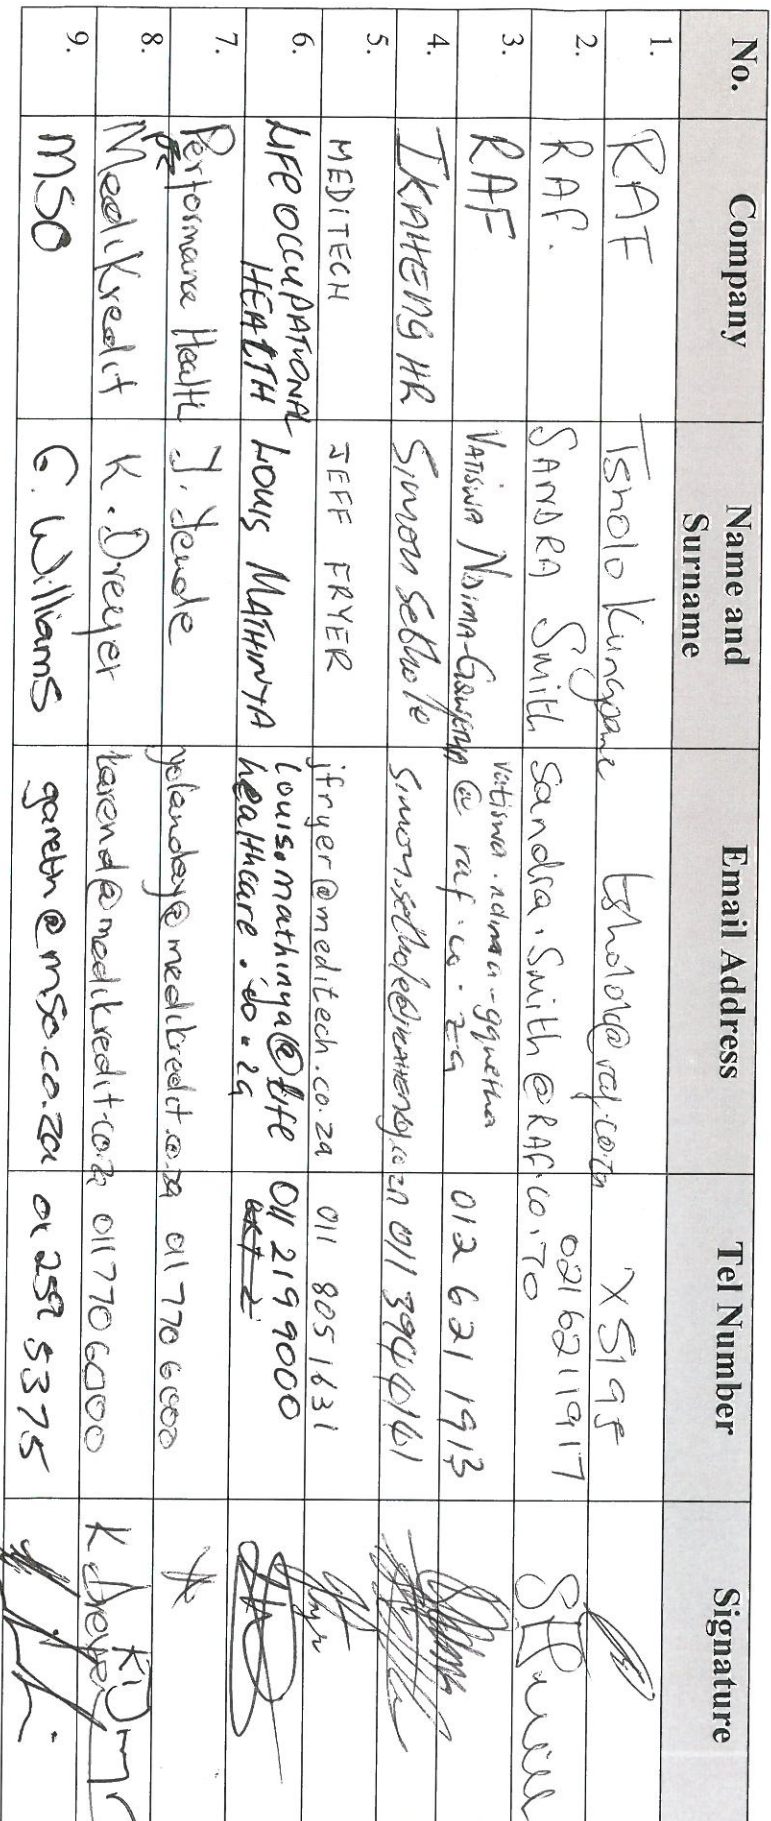 No. Company Name and Surname Email Address Tel Number Signature
1. RAF Tsholo Kungoane tsholok@raf.co.za X5195
2. RAF. SANDRA Smith Sandra.Smith@RAF.co.za 0216211917
3. RAF VATISWA vatiswa.ndima-gqwetha @ raf.co.za 012 621 1913
4. IKAHENG HR Simon Sethole Simon.sethole@ikaheng.co.za
5. MEDITECH JEFF FRYER jfryer@meditech.co.za 011 805 1631
6. LIFE OCCUPATIONAL HEALTH LOUIS MATHINYA louis.mathinya@life healthcare.co.za 011 219 9000
7. Performance Health yolanday@medikredit.co.za 011 770 6000
8. MediKredit K. Dreyer karend@medikredit.co.za 011 770 6000
9. MSO G. Williams gareth@mso.co.za 5375